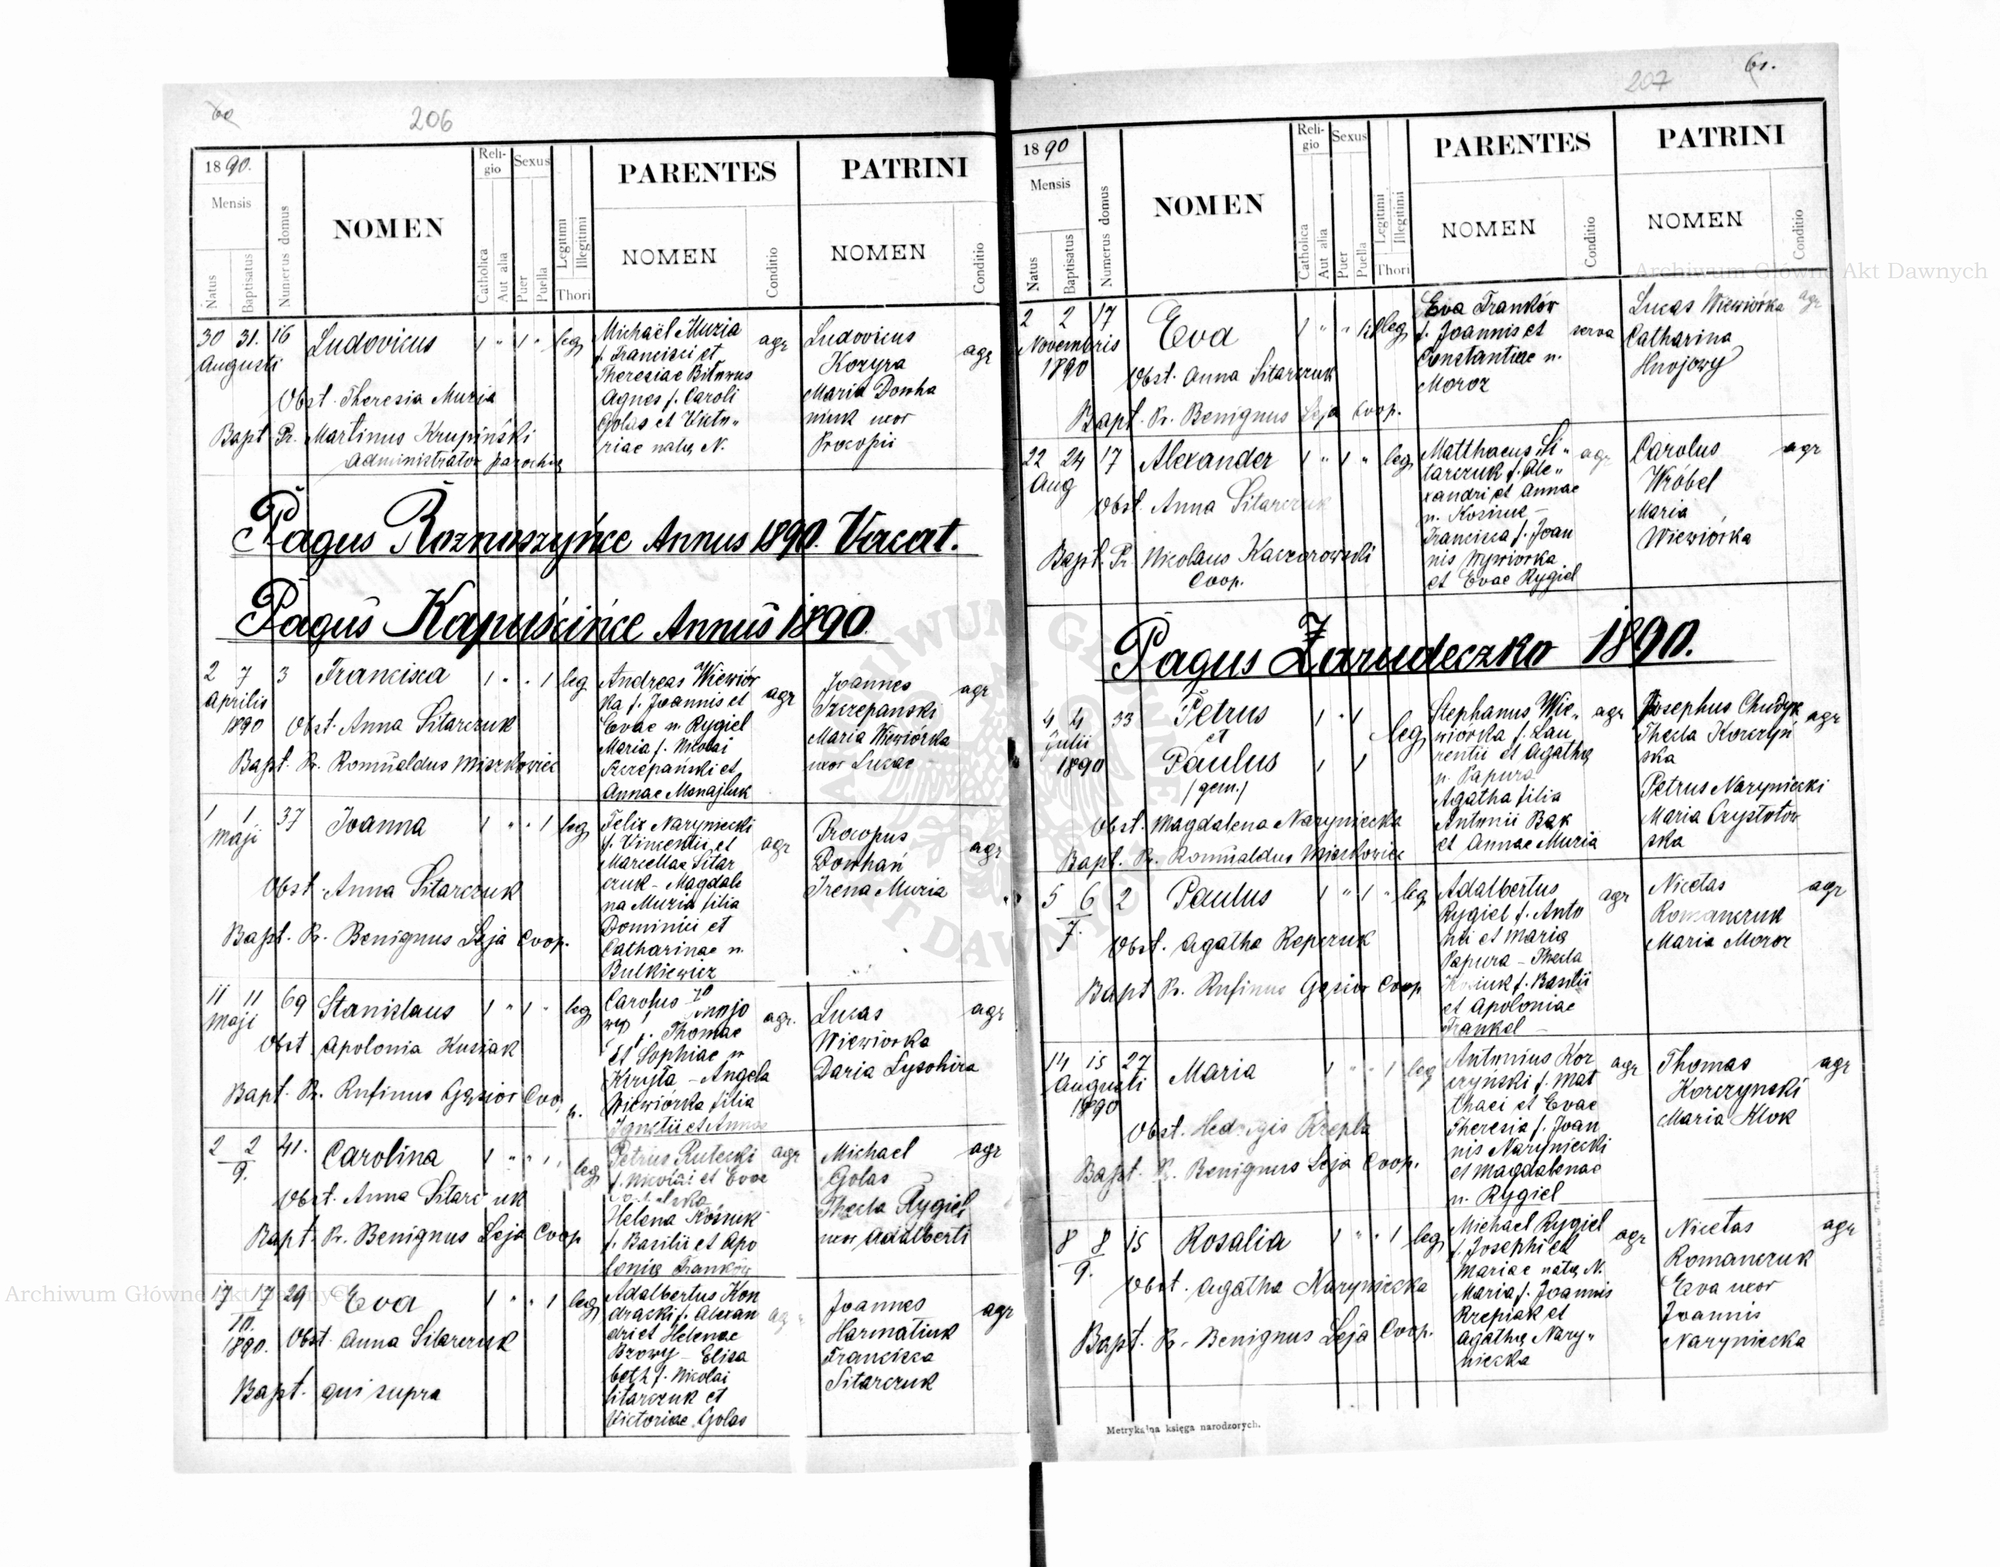 60
206
1890.
Mensis
Natus
Baptisatus
Numerus domus
NOMEN
Reli-
gio
Catholica
Aut alia
Sexus
Puer
Puella
Legitimi
Illegitimi
Thori
PARENTES
NOMEN
Conditio
PATRINI
NOMEN
Conditio
30 31. 16 Ludovicus 1 " 1 " leg
Augusti
Obst. Theresia Muzia
Bapt Pr. Martinus Krupiński
administrator parochiae
Michaël Muzia agr
f. Francisci et
Theresiae
Agnes f. Caroli
Golas et Victo"
riae natae N.
Ludovicus
Kozyra agr
Maria Dowha
niuk uxor
Procopii
Pagus Roznoszyńce Annus 1890. Vacat.
Pagus Kapuścińce Annus 1890
2 7 3 Francisca 1 " " 1 leg
Aprilis
1890 Obst. Anna Sitarczuk
Bapt. Pr. Romualdus Miszkowicz
Andreas Wiewiór
ka f. Joannis et agr
Evae n. Rygiel
Maria f. Nicolai
Szczepański et
Annae Manajluk
Joannes agr
Szczepanski
Maria Wiewiórka
uxor Lucae
1 1 37 Joanna 1 " " 1 leg
Maji
Obst. Anna Sitarczuk
Bapt. Pr. Benignus Leja Coop.
Felix Naryniecki
f. Vincentii et agr
Marcellae Sitar
czuk - Magdale
na Muzia filia
Dominici et
Catharinae n.
Bulkiewicz
Procopus
Dowhań agr
Irena Muzia
11 11 69 Stanislaus 1 " 1 " leg
Maji
Obst. Apolonia Kusiak
Bapt. Pr. Rufinus Gąsior Coo
p.
Carolus
f. Thomae agr.
et Sophiae n
Kryjta - Angela
Wiewiórka filia
Ignatii et Annae
Lucas agr
Wiewiorka
Daria Lysohira
2 2 41. Carolina 1 " " 1 leg
9.
Obst. Anna Sitarczuk
Bapt. Pr. Benignus Leja Coop
Petrus Rutecki agr
f. Nicolai et Evae
Helena Kośiuk
f. Basilii et Apo
lonia Franków
Michael agr
Golas
Thecla Rygiel
uxor Adalberti
17 17 29 Eva 1 " " 1 leg
10.
1890. Obst. Anna Sitarczuk
Bapt. qui supra
Adalbertus Kon
dracki f. Alexan agr
dri et Helenae
Browy - Elisa
beth f. Nicolai
Sitarczuk et
Victoriae Golas
Joannes agr
Harmatiuk
Francisca
Sitarczuk
207
61.
1890
Mensis
Natus
Baptisatus
Numerus domus
NOMEN
Reli-
gio
Catholica
Aut alia
Sexus
Puer
Puella
Legitimi
Illegitimi
Thori
PARENTES
NOMEN
Conditio
PATRINI
NOMEN
Conditio
2 2 17 Eva 1 " "
Novembris
1890 Obst. Anna Sitarczuk
Bapt. Pr. Benignus Leja Coop.
Eva Franków
f. Joannis et serva
Constantiae n.
Moroz
Lucas Wiewiórka agr
Catharina
Hnojowy
22 24 17 Alexander 1 " 1 " leg
Aug
Obst. Anna Sitarczuk
Bapt. Pr. Nicolaus Kaczorowski
Coop.
Matthaeus Si" agr
tarczuk f. Ale"
xandri et Annae
n. Kosiuk -
Francisca f. Joan
nis Wywiorka
et Evae Rygiel
Carolus agr
Wróbel
Maria
Wiewiórka
Pagus Zarudeczko 1890.
4 4 33 Petrus 1 " 1
Julii et leg
1890 Paulus 1 1
/gem./
Obst. Magdalena Naryniecka
Bapt. Pr. Romualdus Miszkowicz
Stephanus Wie" agr
wiórka f. Lau
rentii et Agathae
n. Papura
Agatha filia
Antonii Bak
et Annae Muzia
Josephus Chudyk agr
Thecla Korczyń
ska
Petrus Naryniecki
Maria Crystotow
ska
5 6 2 Paulus 1 " 1 " leg
7.
Obst. Agatha Repczuk
Bapt Pr. Rufinus Gąsior Coop
Adalbertus agr
Rygiel f. Anto
nii et Maria
Papura - Thecla
Kosiuk f. Basilii
et Apoloniae
Frankol -
Nicetas agr
Romanczuk
Maria Moroz
14 15 27 Maria 1 " " 1 leg
Augusti
1890
Obst. Hedvigis Krepla
Bapt. Pr. Benignus Leja Coop.
Antonius Kor agr
czyński f. Mat
thaei et Evae
Theresia f. Joan
nis Naryniecki
et Magdalenae
n. Rygiel
Thomas agr
Korczynski
Maria Klok
8 8 15 Rosalia 1 " " 1 leg
9.
Obst. Agatha Naryniecka
Bapt. Pr. Benignus Leja Coop.
Michael Rygiel agr
f. Josephi et
Mariae natae N.
Maria f. Joannis
Krepiak et
Agatha Nary"
niecka
Nicetas agr
Romanczuk
Eva uxor
Joannis
Naryniecka
Metrykalna księga narodzonych.
Archiwum Główne Akt Dawnych
Archiwum Główne Akt Dawnych
ARCHIWUM GŁÓWNE AKT DAWNYCH